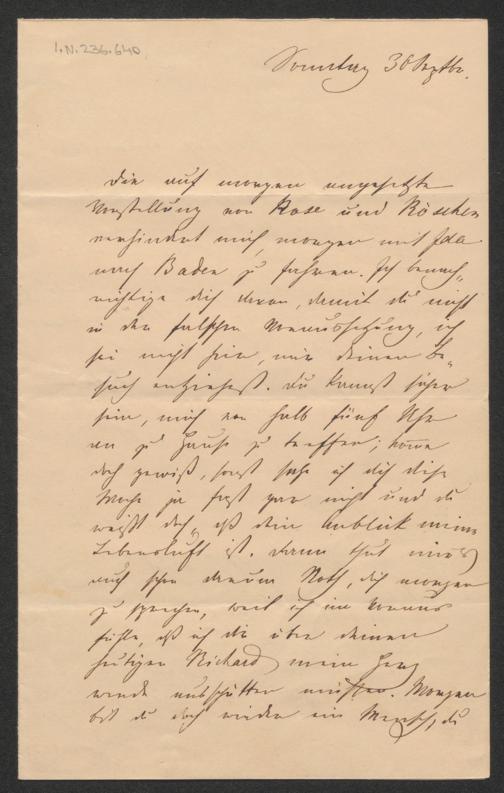 I.N. 236.640
Sonntag 30 Septbr.
Die auf morgen angesetzte
Vorstellung von Rose und Röschen
verhindert mich, morgen mit Ida
nach Baden zu fahren. Ich benach-
richtige dich davon, damit du nicht
in der falschen Voraussetzung, ich
sei nicht hier, mir deinen Be-
such entziehest. Du kannst sicher
sein, mich von halb fünf Uhr
an zu Hause zu treffen; komme
doch gewiß, sonst sehe ich dich diese
Woche ja fast gar nicht und du
weißt doch, daß dein Anblick meine
Lebensluft ist. Dann thut mir's
auch schon darum Noth, dich morgen
zu sprechen, weil ich im Voraus
fühle, daß ich dir über deinen
heutigen Richard mein Herz
werde ausschütten müssen. Morgen
bist du doch wieder ein Mensch, du